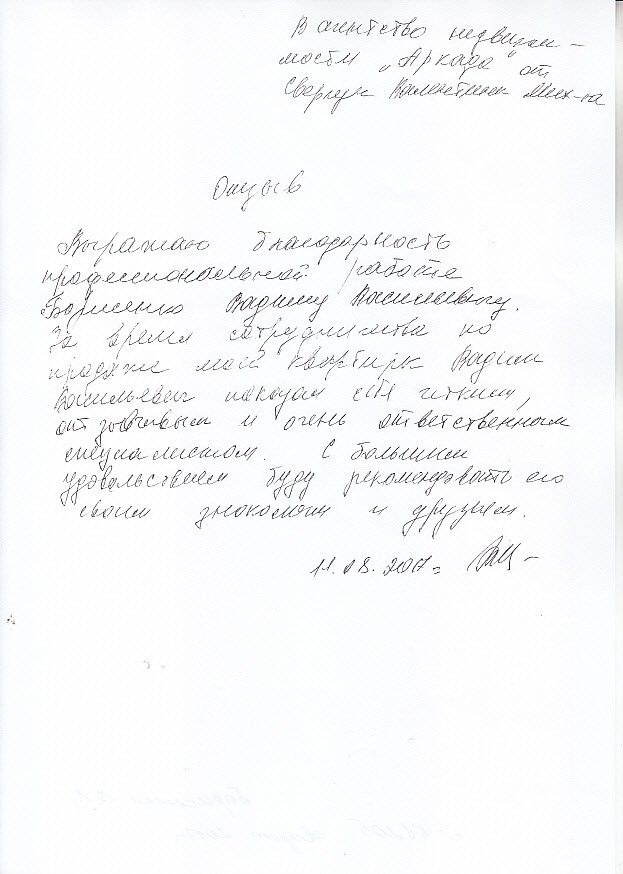 В агентство недвижи-
мости „Аркада“ от
Валентины Мих-ны
Отзыв
Выражаю благодарность
профессиональной работе
Борисенко Вадиму Васильевичу.
За время сотрудничества по
продаже моей квартиры Вадим
Васильевич показал себя чтким,
отзывчивым и очень ответственным
специалистом. С большим
удовольствием буду рекомендовать его
своим знакомым и друзьям.
11.08.2017г